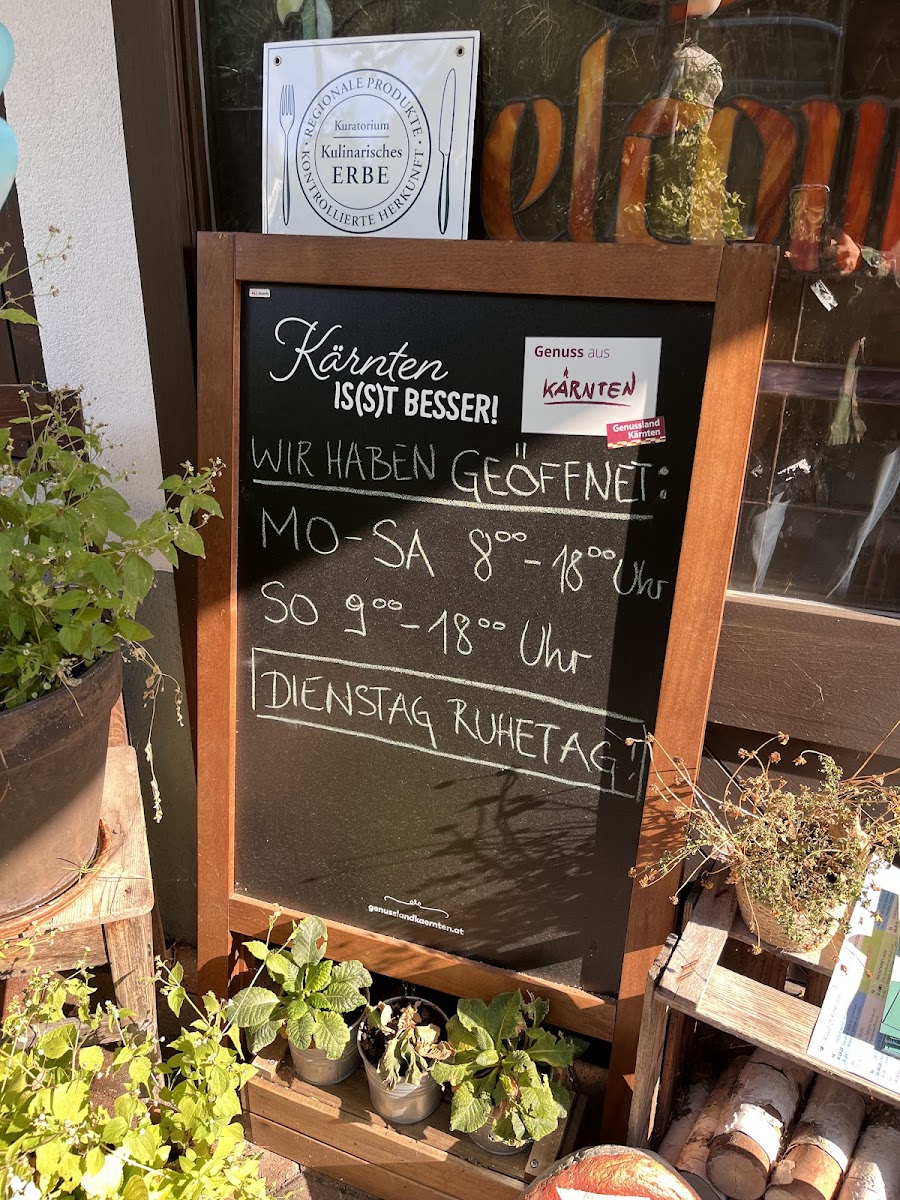 REGIONALE PRODUKTE
Kuratorium
Kulinarisches
ERBE
KONTROLLIERTE HERKUNFT
Kärnten
IS(S)T BESSER!
Genuss aus
KÄRNTEN
Genussland
Kärnten
WIR HABEN GEÖFFNET:
MO-SA 8⁰⁰-18⁰⁰ Uhr
SO 9⁰⁰-18⁰⁰ Uhr
DIENSTAG RUHETAG!
genusslandkaernten.at